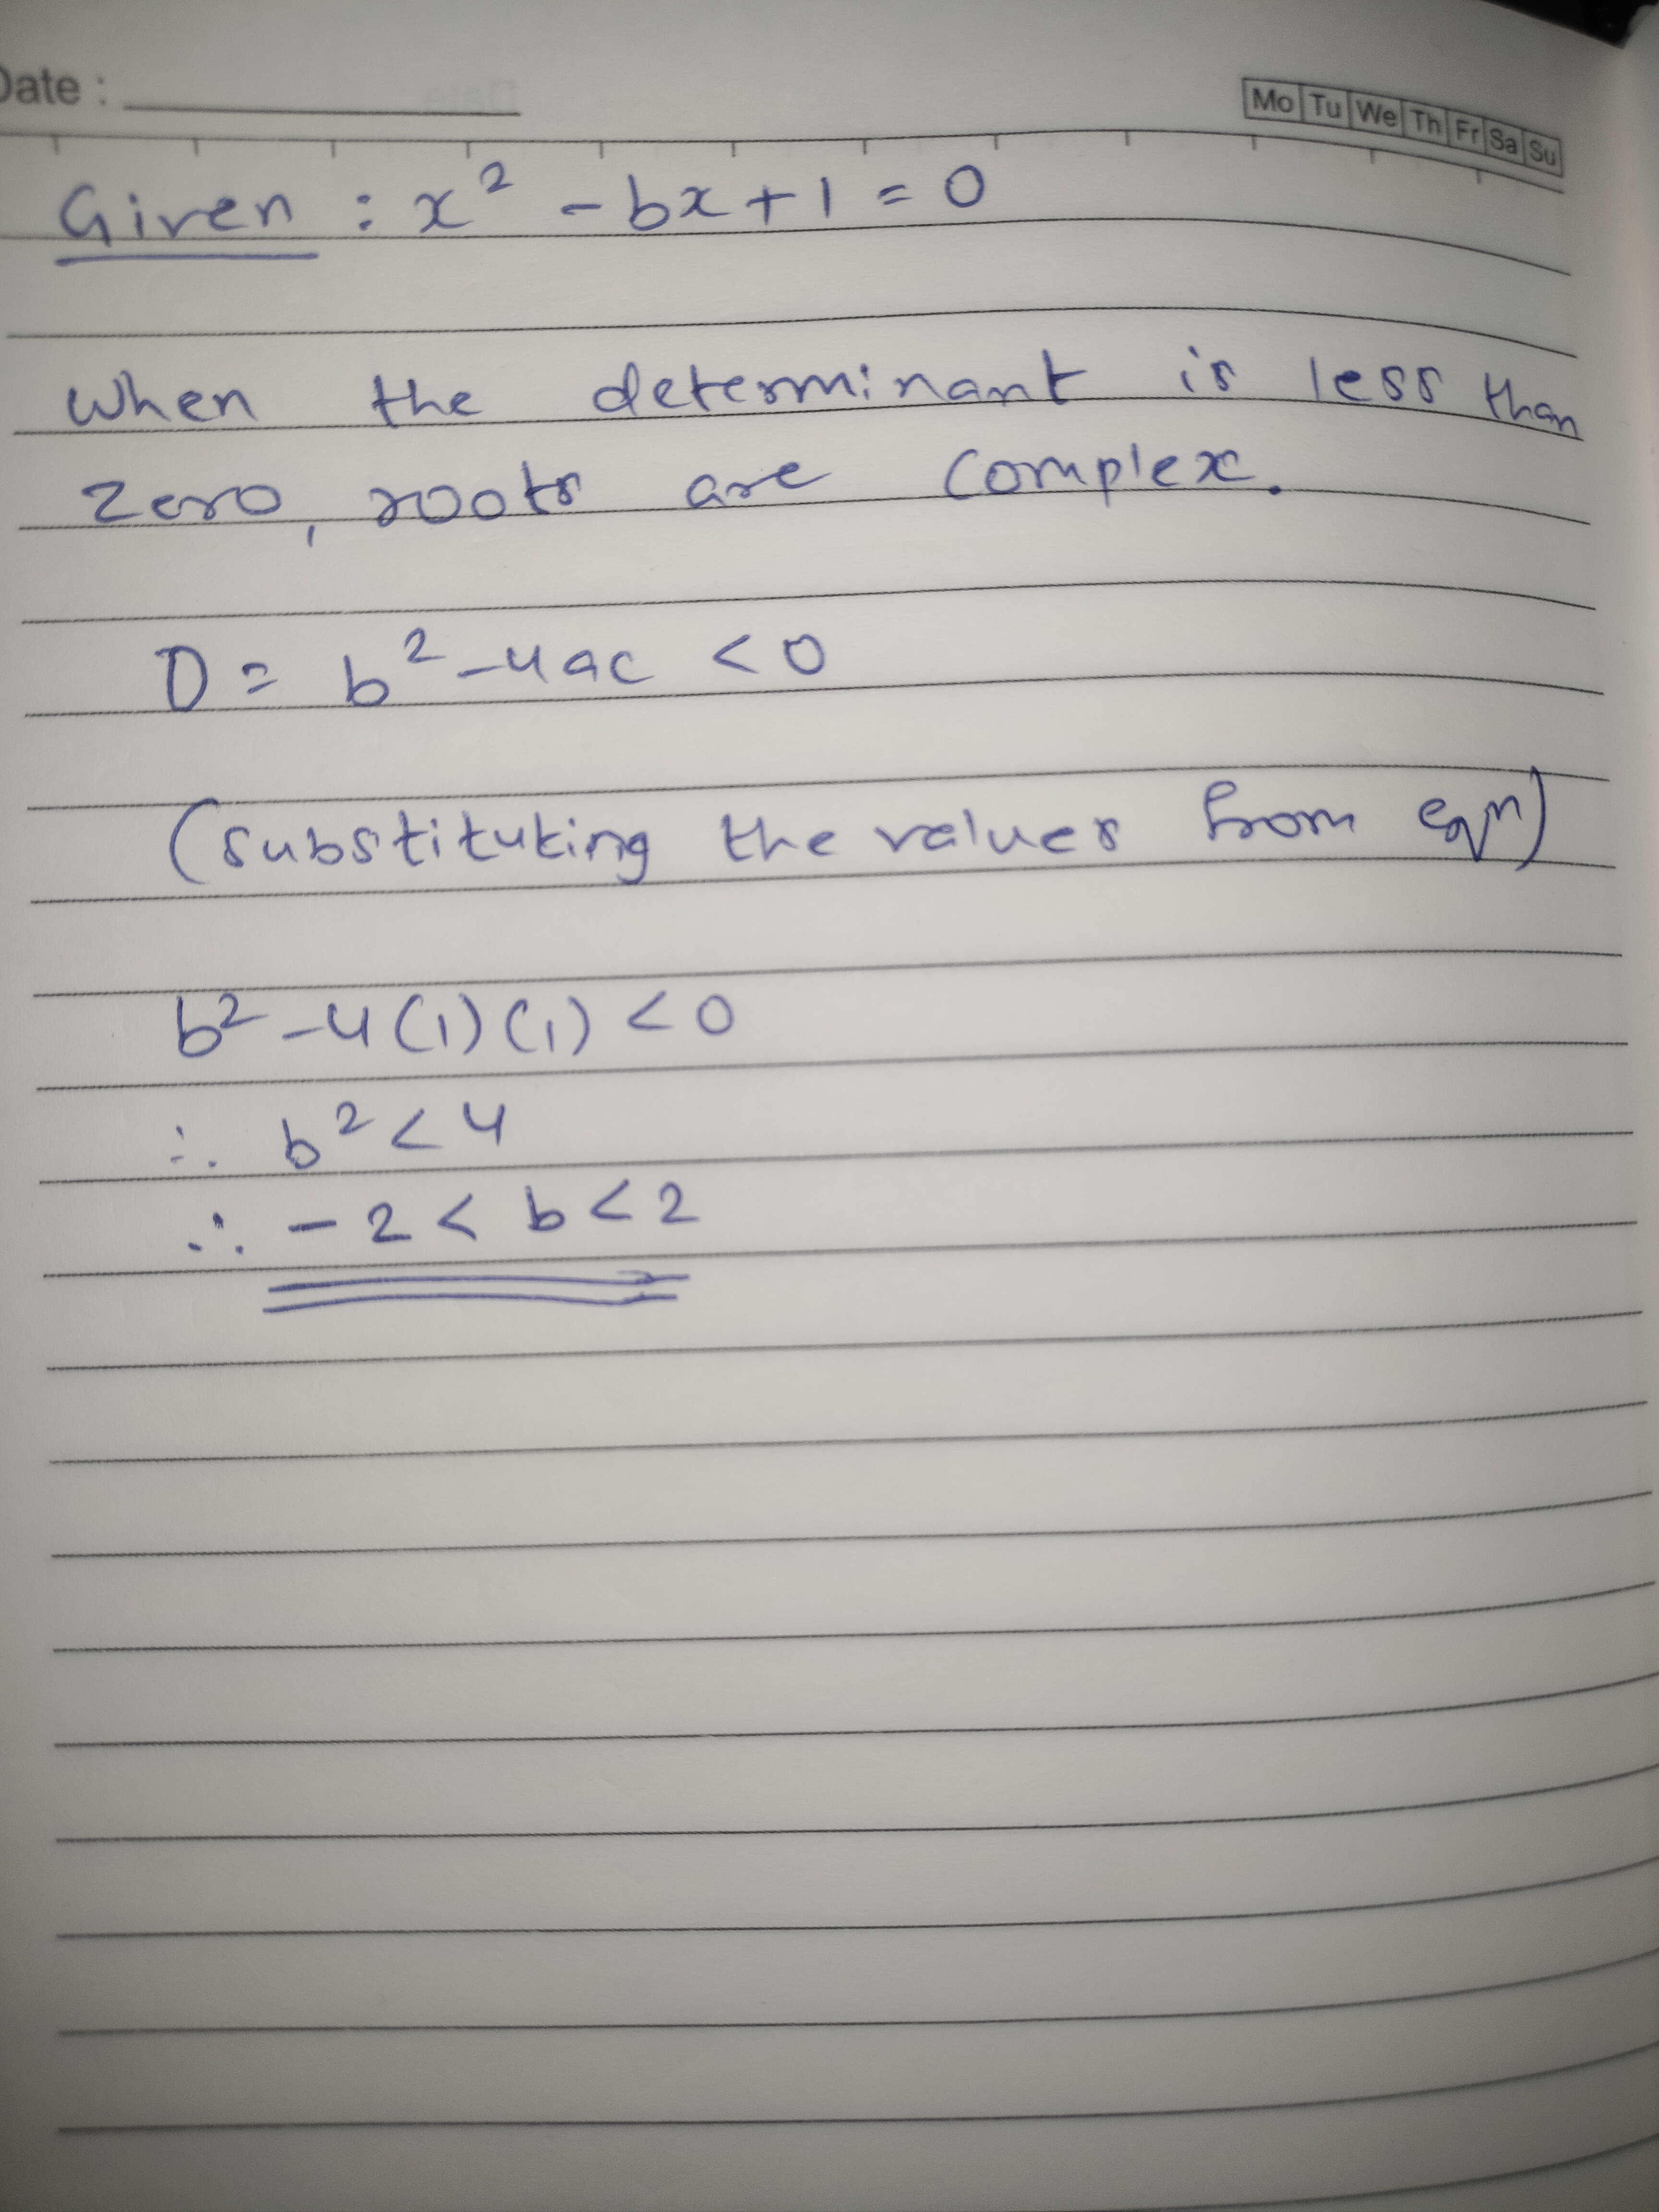 Date :
Mo Tu We Th Fr Sa Su
Given : x² - bx + 1 = 0
When the determinant is less than
zero, roots are complex.
D = b² - 4ac < 0
(substituting the values from eqn)
b² - 4(1)(1) < 0
∴ b² < 4
∴ -2 < b < 2